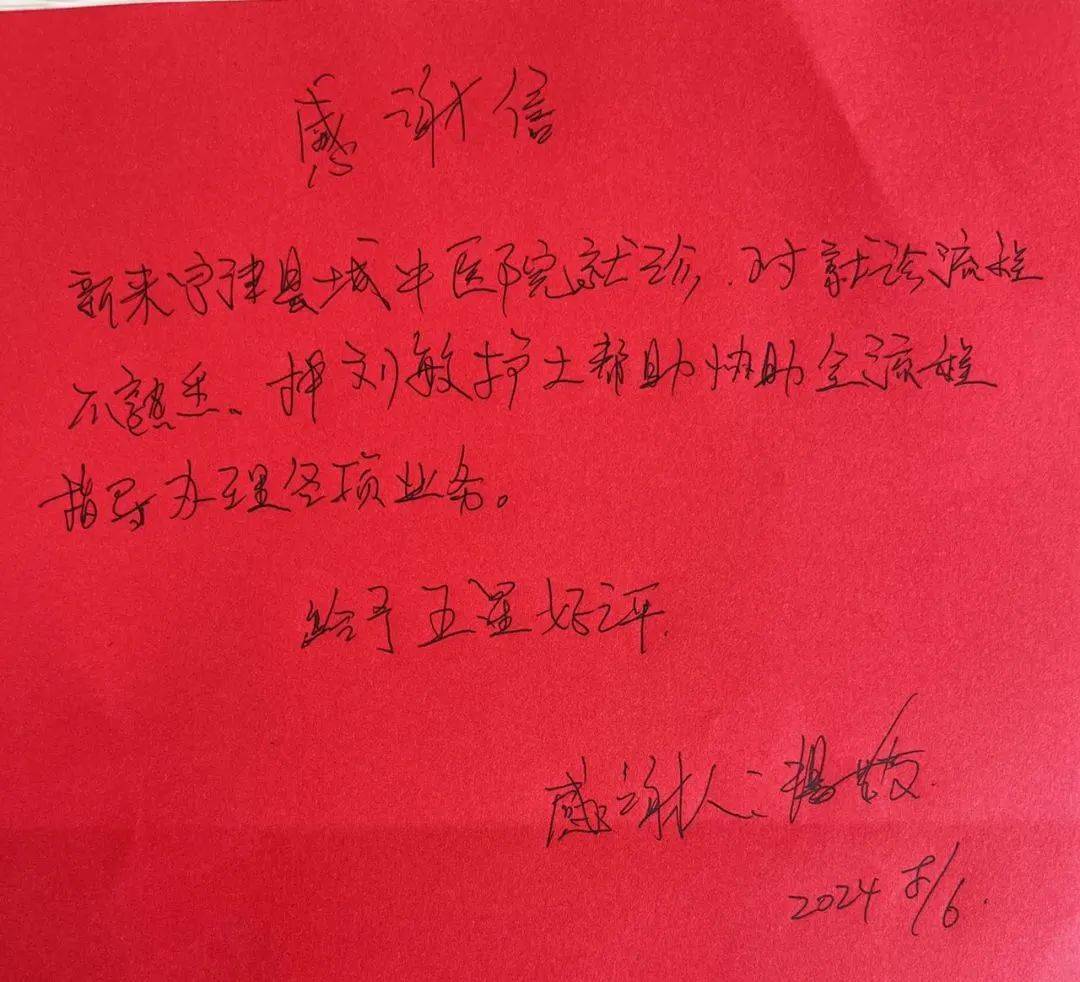 感谢信
新来宁津县城中医院就诊,对就诊流程
不熟悉、押刘敏护士帮助协助全流程
指导办理各项业务。
给予五星好评.
感谢人:杨
2024 5/6.